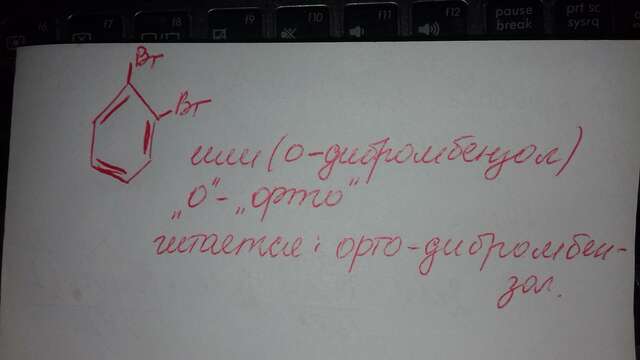 f6 f7 f8 f9 f10 f11 f12 pause break prt sc sysrq
Br
Br
или (о-дибромбензол)
„о“-„орто“
читается: орто-дибромбен-
зол.